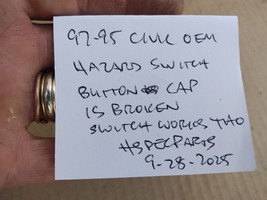 92-95 CIVIC OEM
HAZARD SWITCH
BUTTON CAP
IS BROKEN
SWITCH WORKS THO
HSPECPARTS
9-28-2025